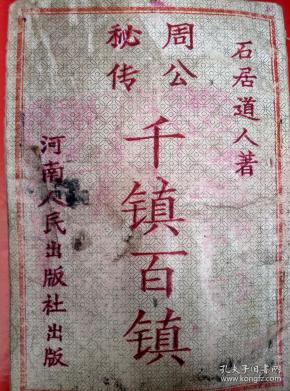 石居道人著
周公
秘传
千镇百镇
河南人民出版社出版
孔夫子旧书网
kongfz.com